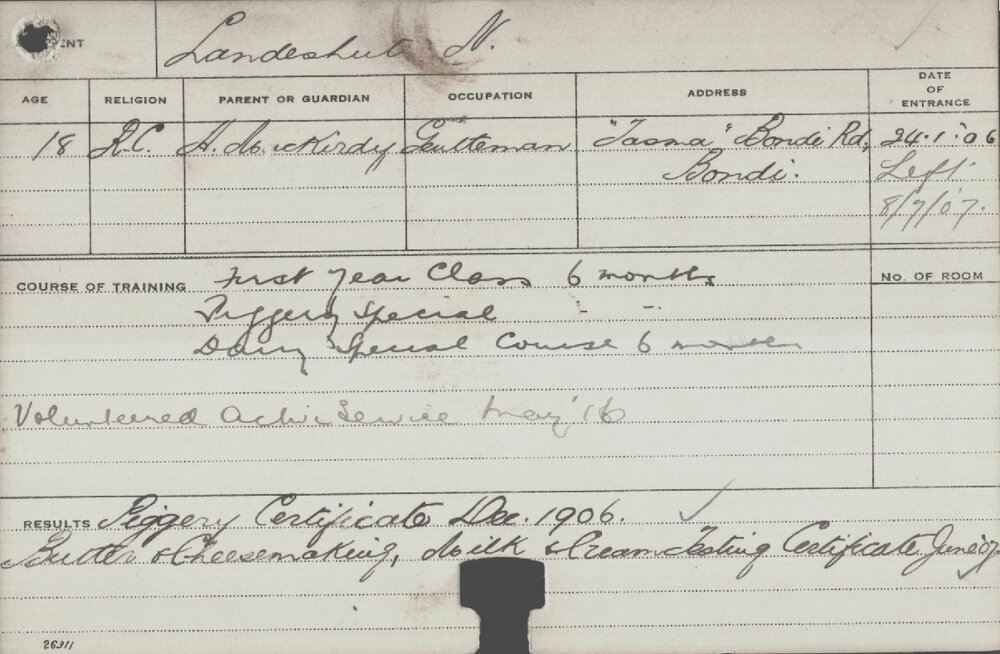 Landeshut N.
AGE RELIGION PARENT OR GUARDIAN OCCUPATION ADDRESS DATE OF ENTRANCE
18 R.C. H. McKirdy Gentleman "Tasma" Bondi Rd, 24.1.'06
Bondi. Left
8/7/07.
COURSE OF TRAINING First Year Class 6 months No. OF ROOM
Piggery Special " "
Dairy Special Course 6 months
Volunteered Active Service May '16
RESULTS Piggery Certificate Dec. 1906.
Butter & Cheesemaking, Milk & Cream Testing Certificate June '07
26311